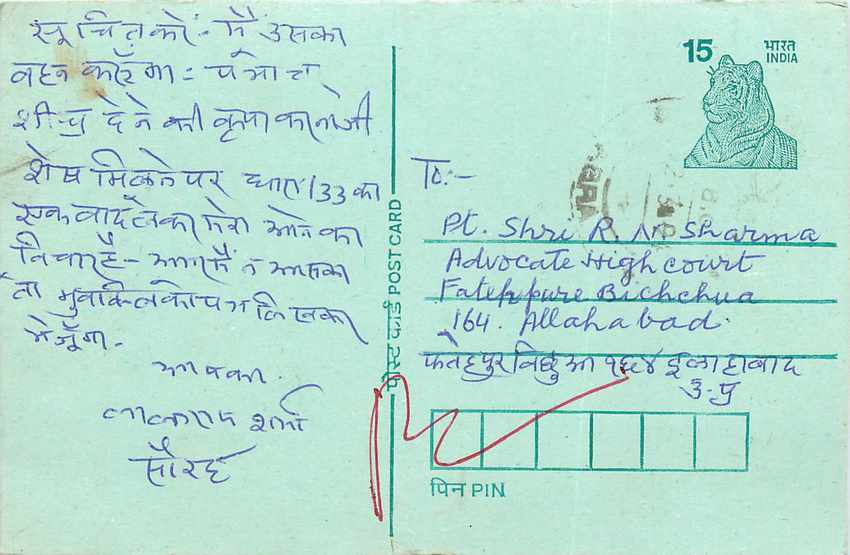 सूचित करें:- मैं उसका
वहन करूँगा:-
शीघ्र देने की कृपा करना जी
शेष मिलने पर धारा 133 का
एक वाद लेकर मेरा आने का
विचार है - आप
तो मुवक्किल को पत्र लिखकर
भेजूँगा -
आपका
शर्मा
सौरई
15 भारत
INDIA
To:-
Pt. Shri R. N. Sharma
Advocate High court
Fatehpure Bichchua
164. Allahabad.
फतेहपुर बिछुआ १६४ इलाहाबाद
उ-प्र
पोस्ट कार्ड POST CARD
पिन PIN